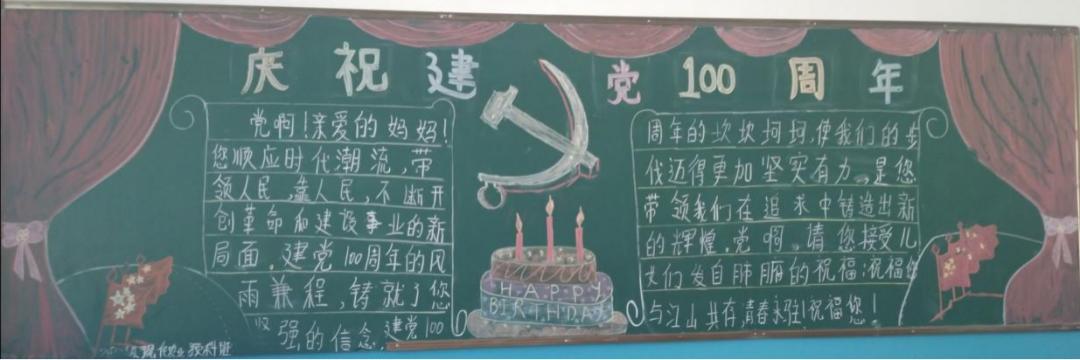 庆祝建党100周年
党啊!亲爱的妈妈!
您顺应时代潮流,带
领人民,靠人民,不断开
创革命和建设事业的新
局面。建党100周年的风
雨兼程,铸就了您
坚强的信念,建党100
周年的坎坎坷坷,使我们的步
伐迈得更加坚实有力。是您
带领我们在追求中铸造出新
的辉煌。党啊。请您接受儿
女们发自肺腑的祝福:祝福您
与江山共存,青春永驻!祝福您!
HAPPY
BIRTHDAY